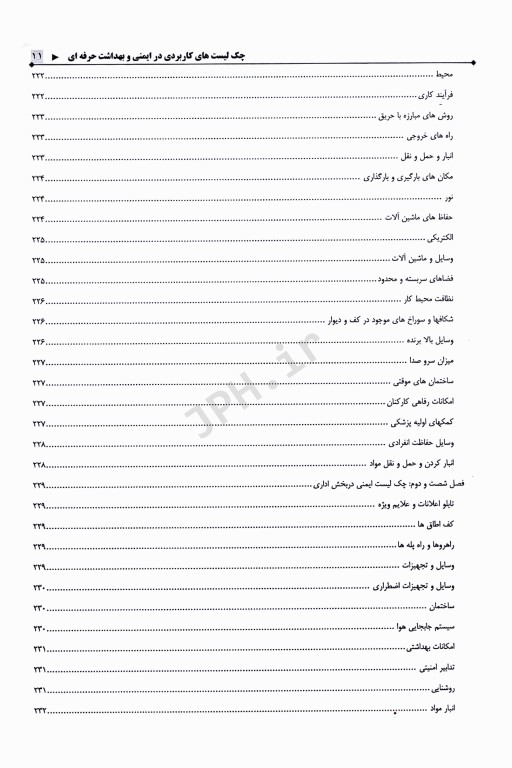 چک لیست های کاربردی در ایمنی و بهداشت حرفه ای ◄ ۱۱
محیط ۲۲۲
فرآیند کاری ۲۲۲
روش های مبارزه با حریق ۲۲۳
راه های خروجی ۲۲۳
انبار و حمل و نقل ۲۲۳
مکان های بارگیری و بارگذاری ۲۲۴
نور ۲۲۴
حفاظ های ماشین آلات ۲۲۴
الکتریکی ۲۲۵
وسایل و ماشین آلات ۲۲۵
فضاهای سربسته و محدود ۲۲۵
نظافت محیط کار ۲۲۶
شکافها و سوراخ های موجود در کف و دیوار ۲۲۶
وسایل بالا برنده ۲۲۶
میزان سرو صدا ۲۲۷
ساختمان های موقتی ۲۲۷
امکانات رفاهی کارکنان ۲۲۷
کمکهای اولیه پزشکی ۲۲۷
وسایل حفاظت انفرادی ۲۲۸
انبار کردن و حمل و نقل مواد ۲۲۸
فصل شصت و دوم: چک لیست ایمنی دربخش اداری ۲۲۹
تابلو اعلانات و علایم ویژه ۲۲۹
کف اطاق ها ۲۲۹
راهروها و راه پله ها ۲۲۹
وسایل و تجهیزات ۲۲۹
وسایل و تجهیزات اضطراری ۲۳۰
ساختمان ۲۳۰
سیستم جابجایی هوا ۲۳۰
امکانات بهداشتی ۲۳۱
تدابیر امنیتی ۲۳۱
روشنایی ۲۳۱
انبار مواد ۲۳۲
JPH.ir